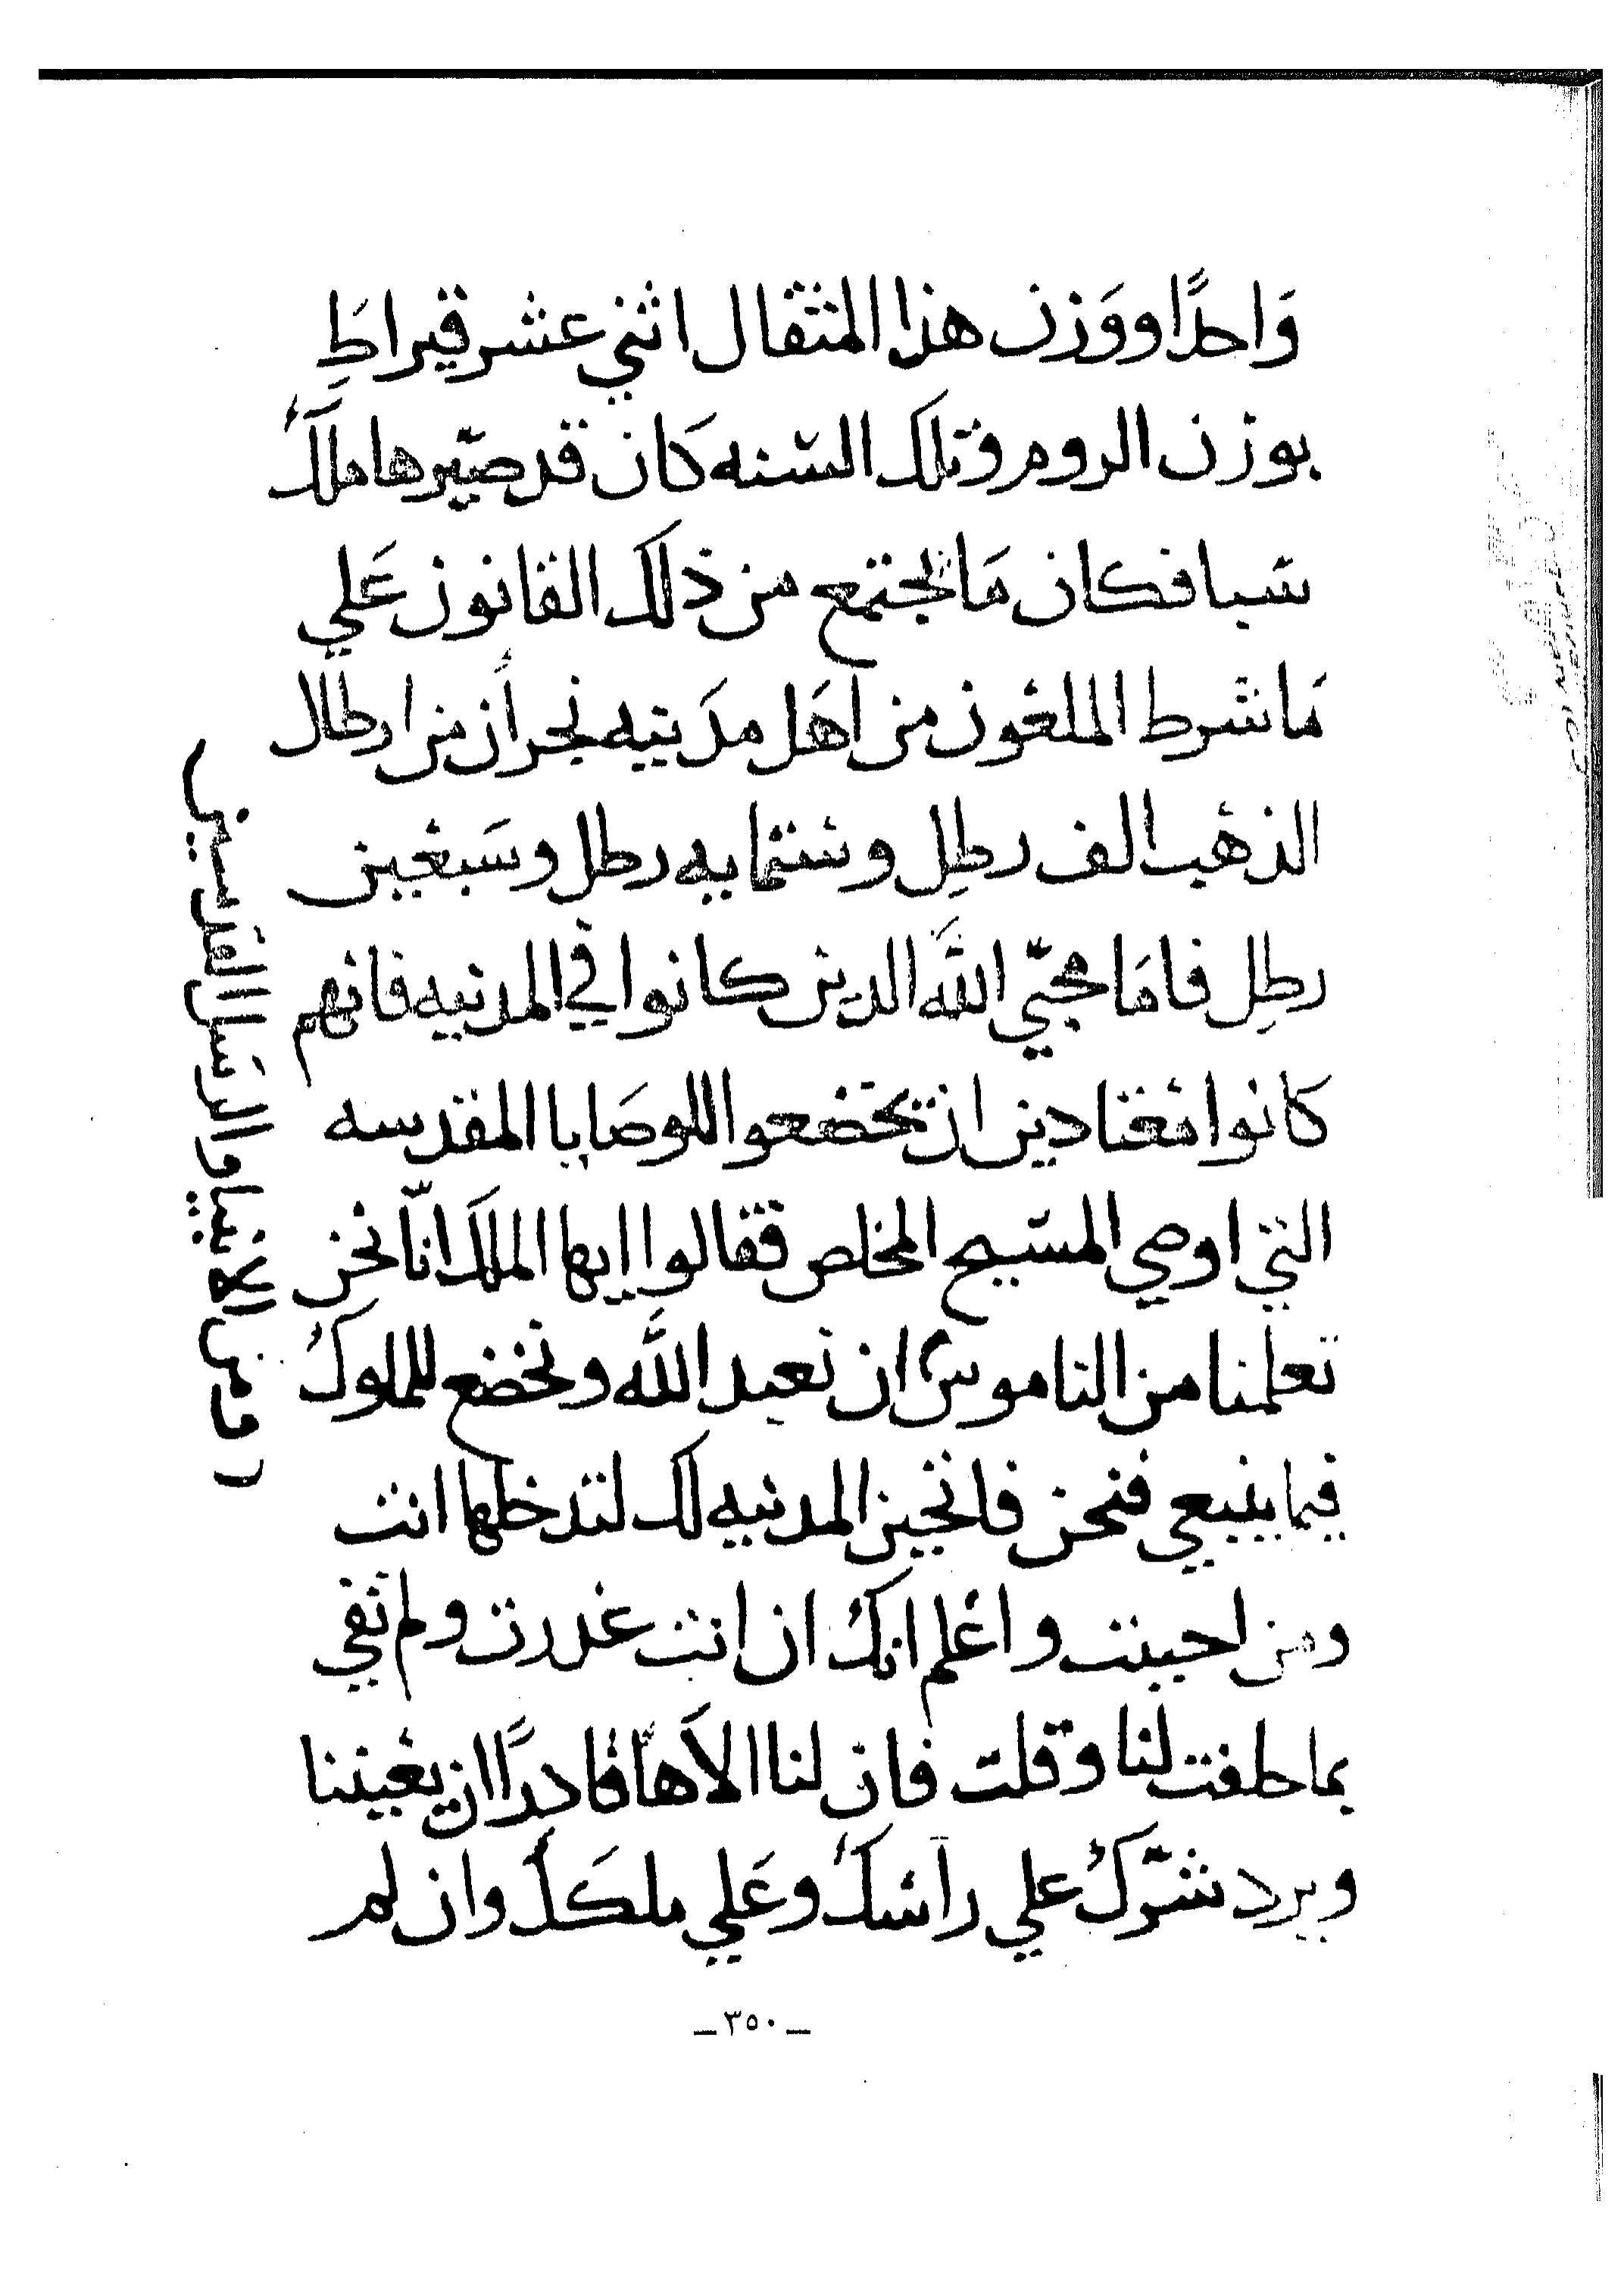 وَاحدًا ووَزن هذا المثقال اثني عشر قيراطَِ
بوزن الروم وتلك السنه كَان قد صيّرها ملكَُ
سبا فكان مَا يجتمع من ذلك القانون عَلي
مَا شرط الملعون من اهَل مدَينه نجرأن من ارطال
الذهب الف رطلِ وستمايه رطل وسَبعين
رطلِ فامَا محبّي اللَّه الدين كانوا في المدينه فانهم
كَانوا معتادين ان يخضعوا للوصَايا المقدسه
التي اوصي المسَيح المخلص فقالوا ايها الملكَ انّا نحن
تعلمنا من الناموسَ ان نعبد اللَّه ونخضع للملوكُ
فيما ينبعي فنحن فاتحين المدينه لك لتدخلها انت
ومن احببت واعلم انكُ ان انت غدرت ولم تفي
بما حلفت لنا وقلت فان لنا الاَهاً قادرًا ان يعيننا
ويرد شَرّكُ علي رآسكُ وعَلي ملكَكُ وان لم
ومن الانبيا والرسَل القديسين
ـ ٣٥٠ ـ